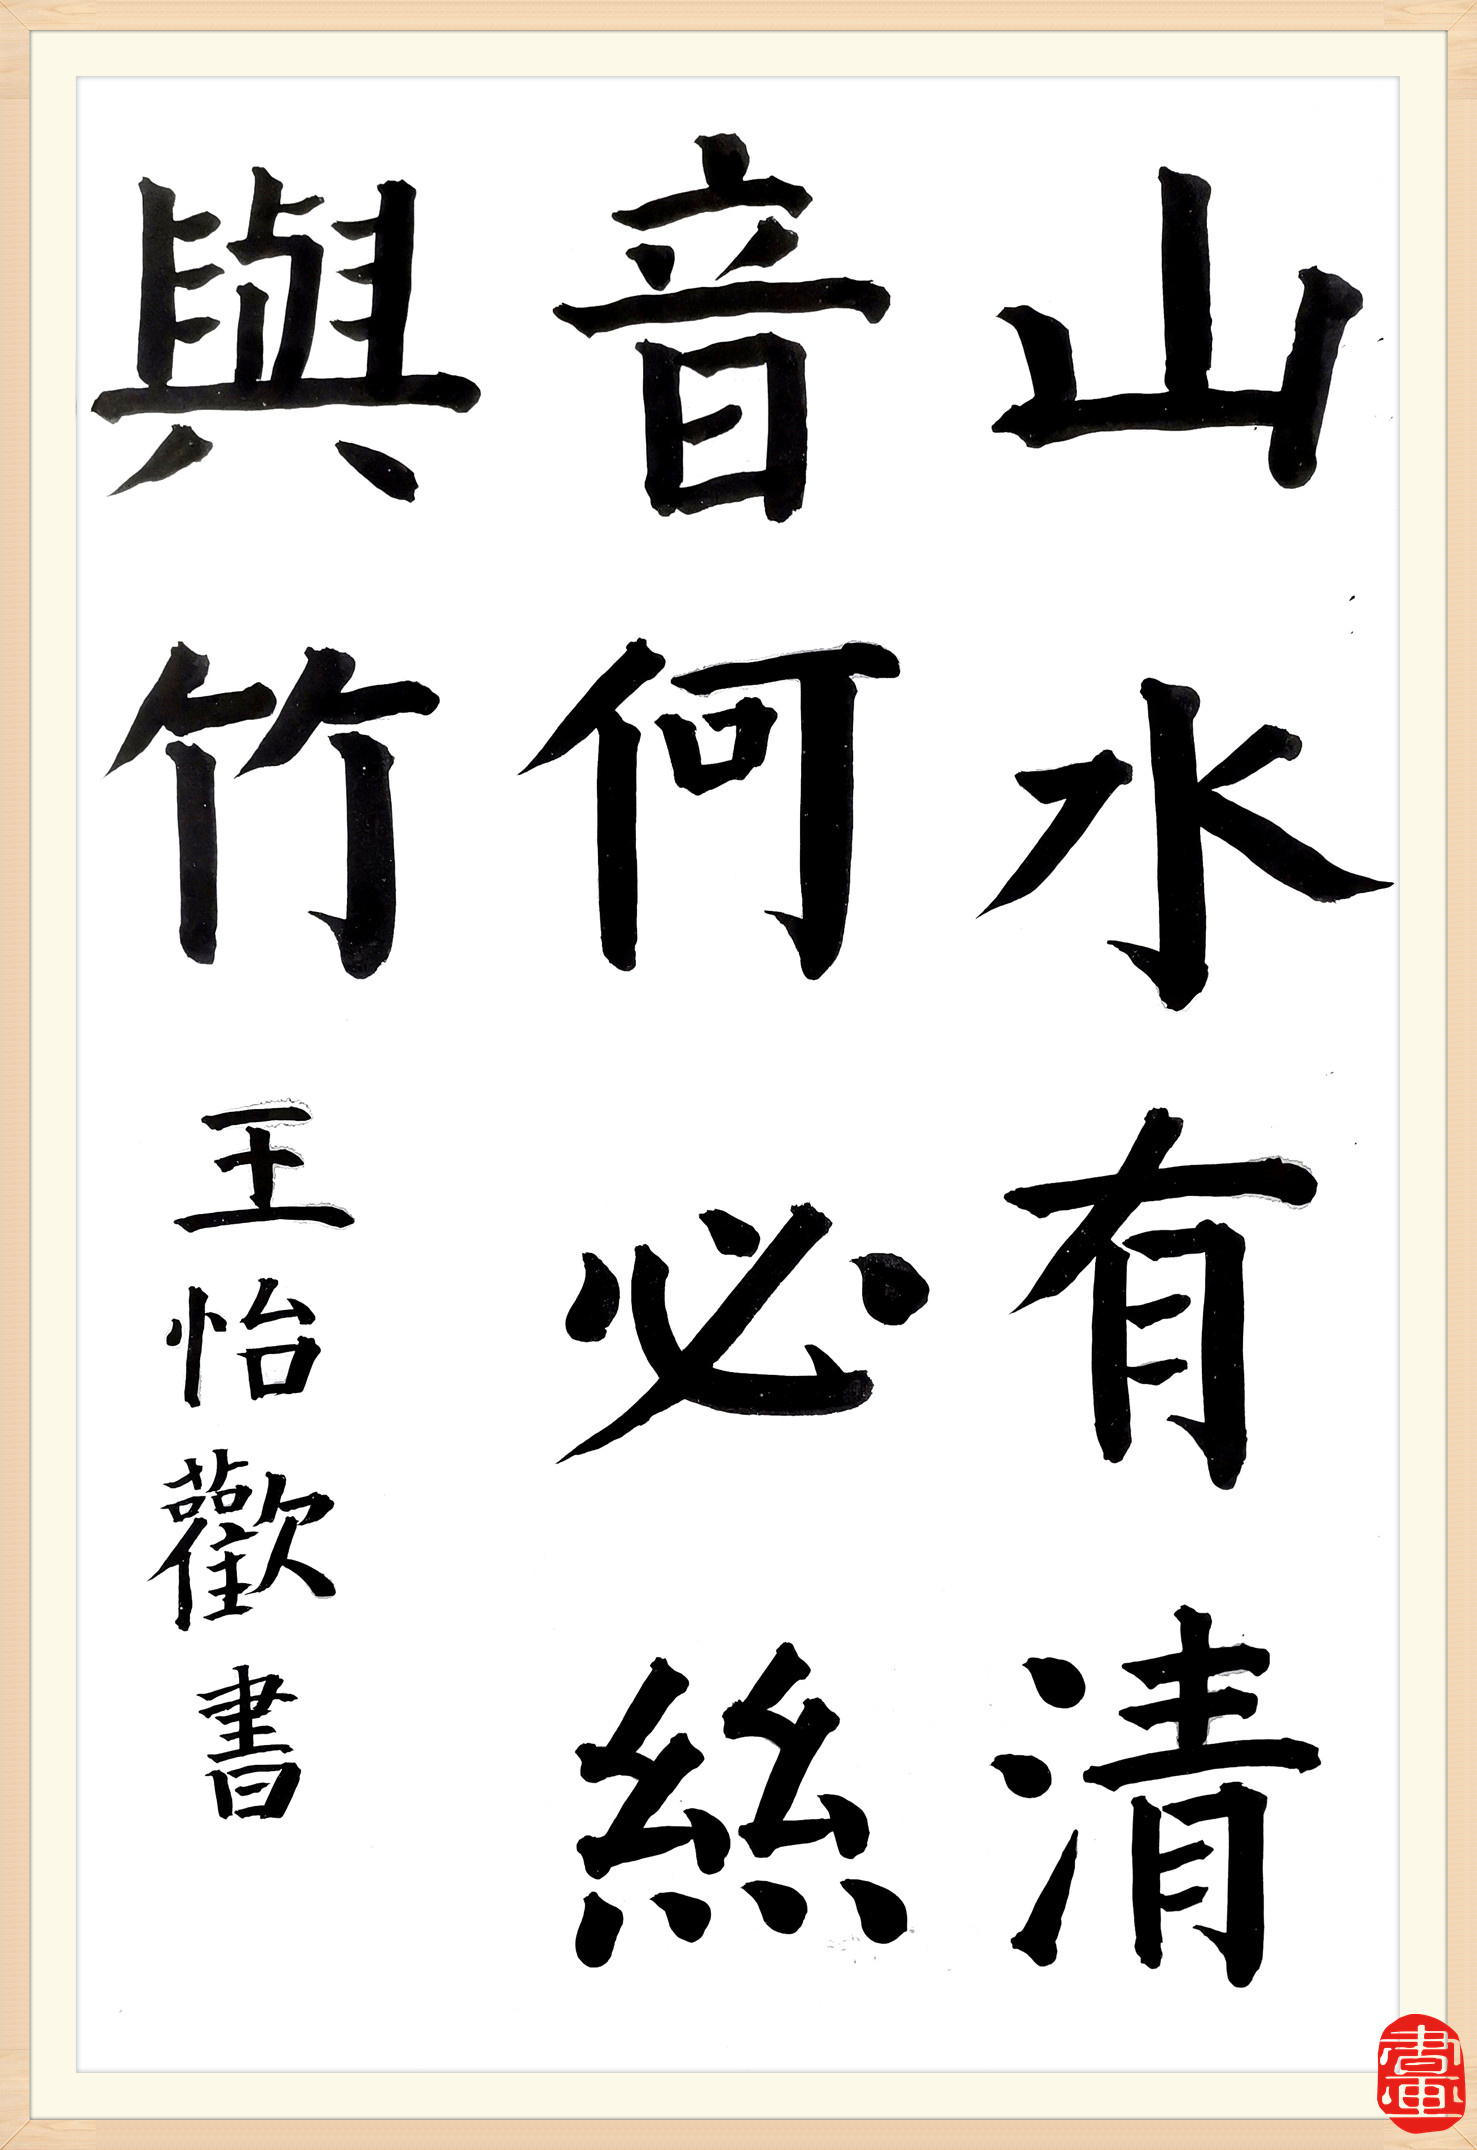 山水有清
音何必絲
與竹
王怡歡書
畫